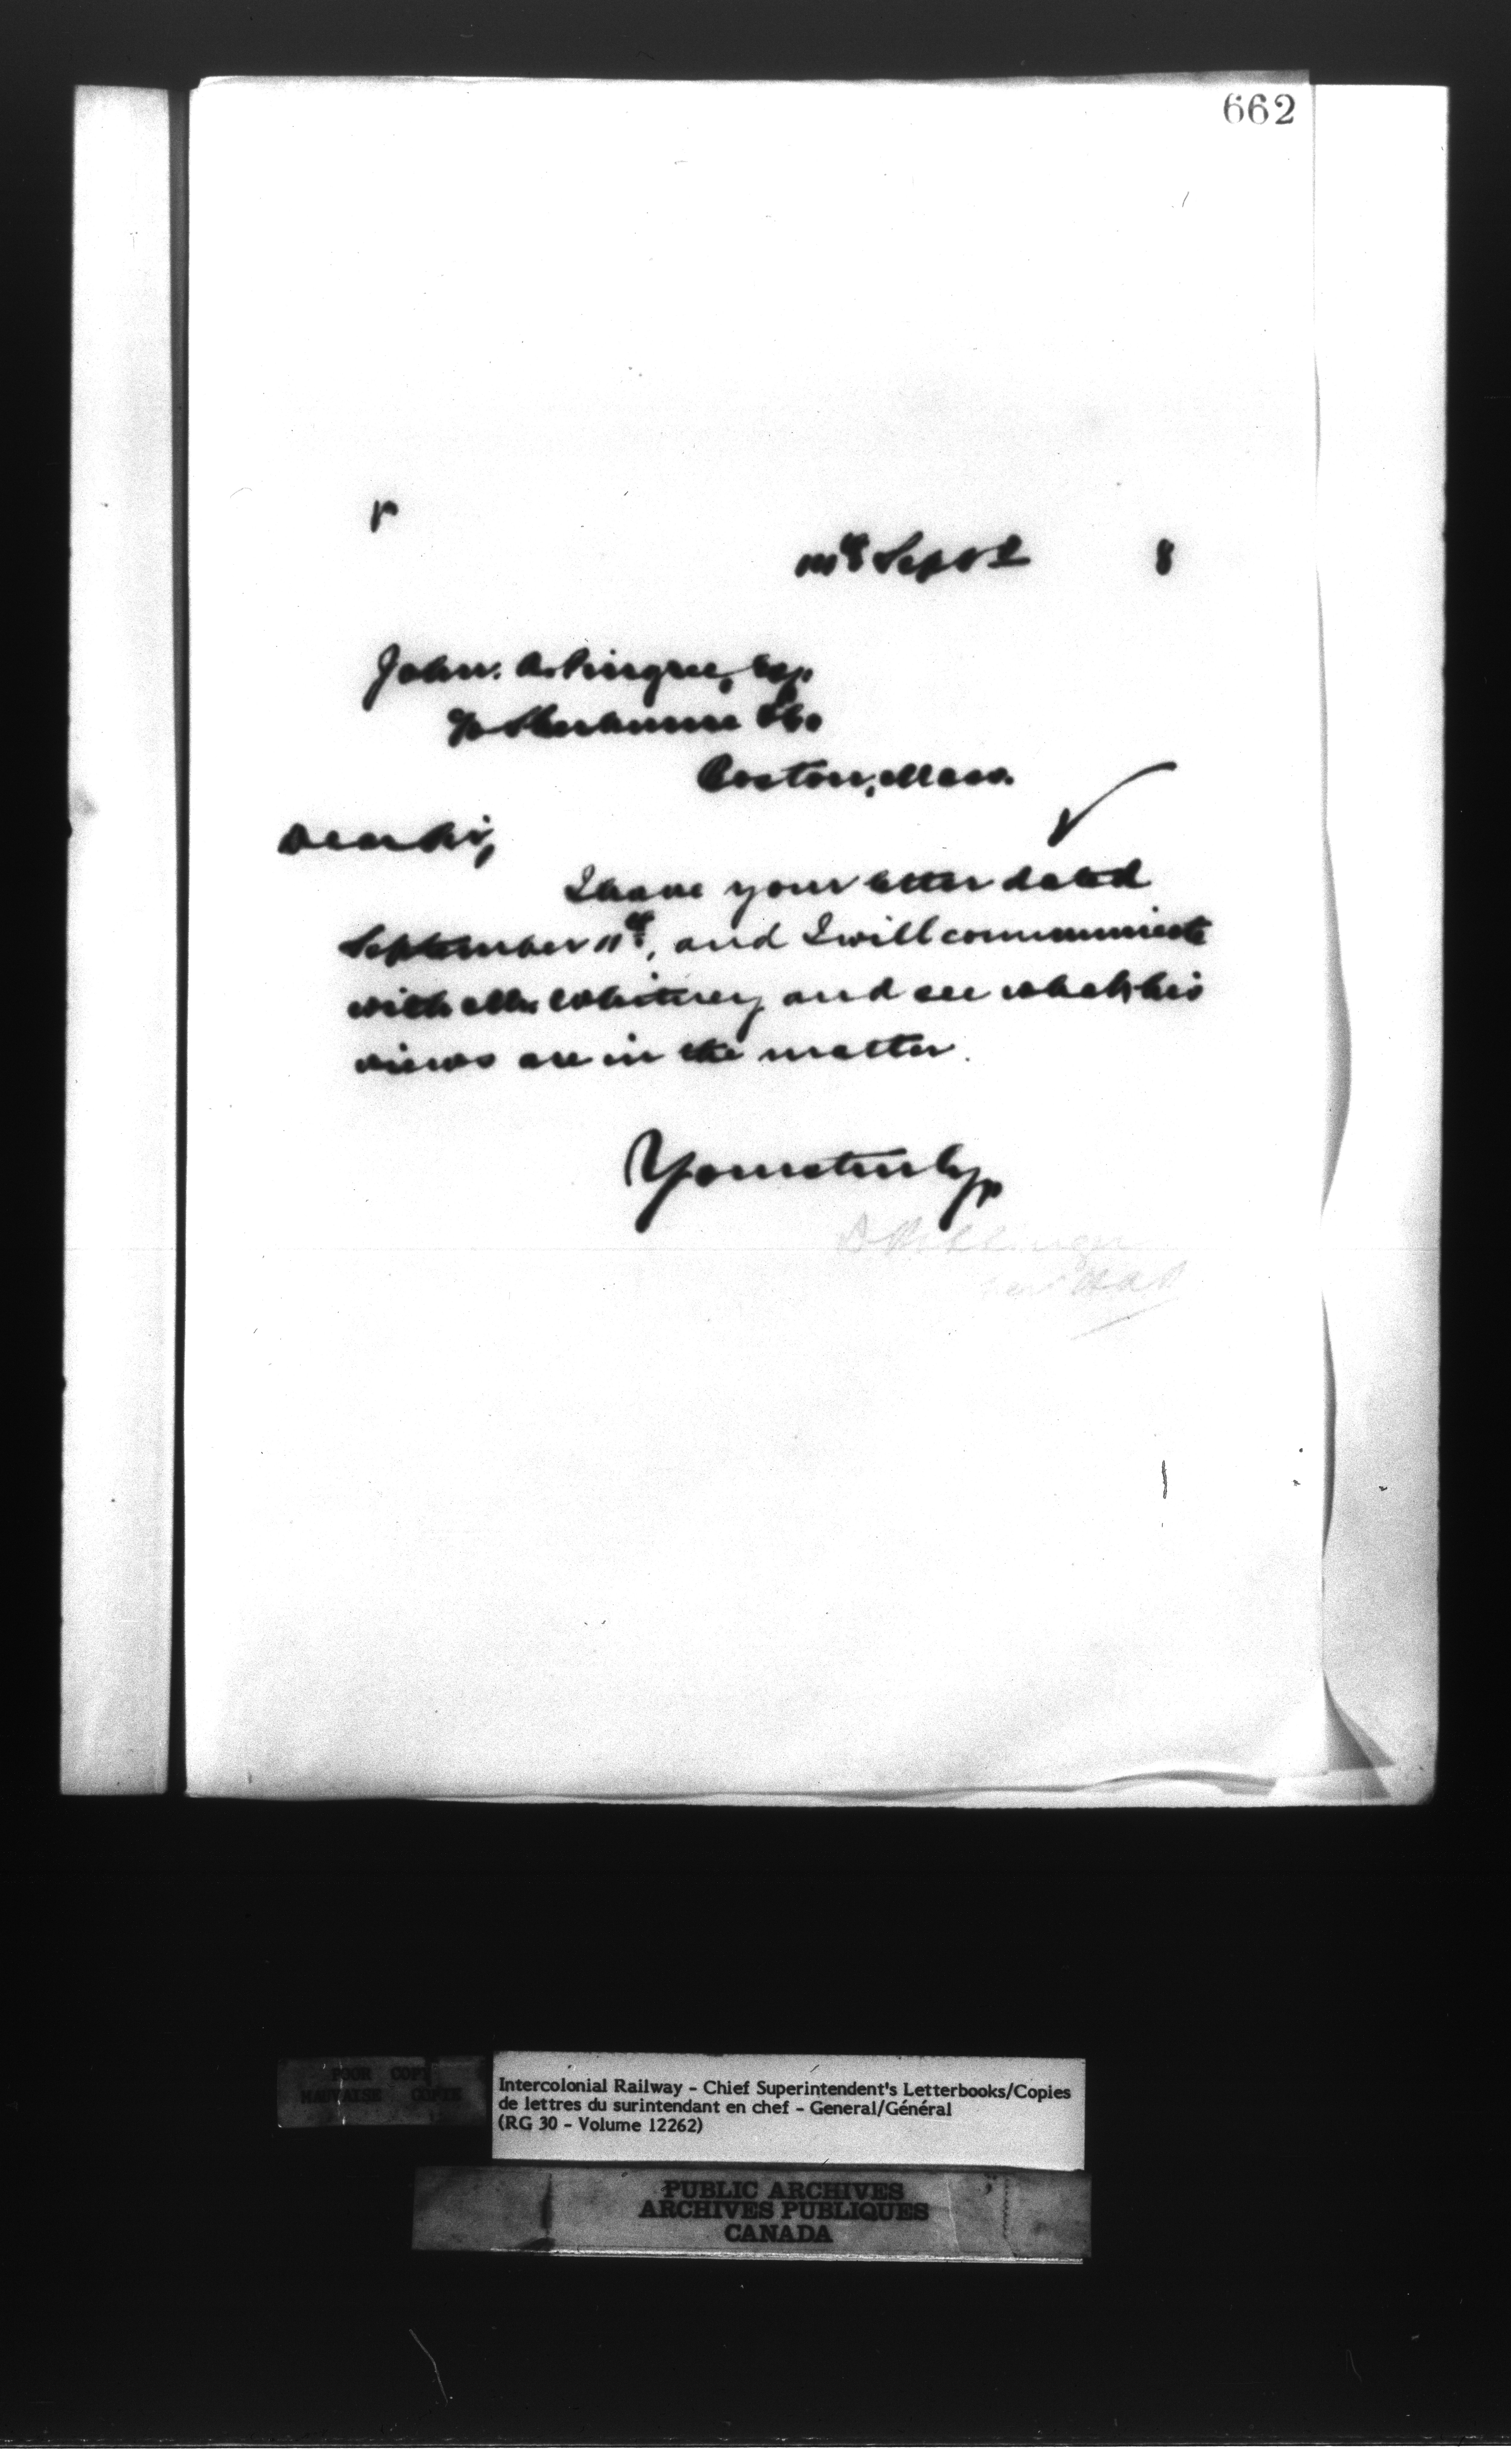 662
r
Sept 8
John. A. Pingree, Esq.
℅ Sherburne & Co.
Boston, Mass.
Dear Sir,
I have your letter dated
September 11th, and I will communicate
with Mr. Whitney and see what his
views are in the matter.
Yours truly,
D Pottinger
POOR COPY
MAUVAISE COPIE
Intercolonial Railway - Chief Superintendent's Letterbooks/Copies
de lettres du surintendant en chef - General/Général
(RG 30 - Volume 12262)
PUBLIC ARCHIVES
ARCHIVES PUBLIQUES
CANADA